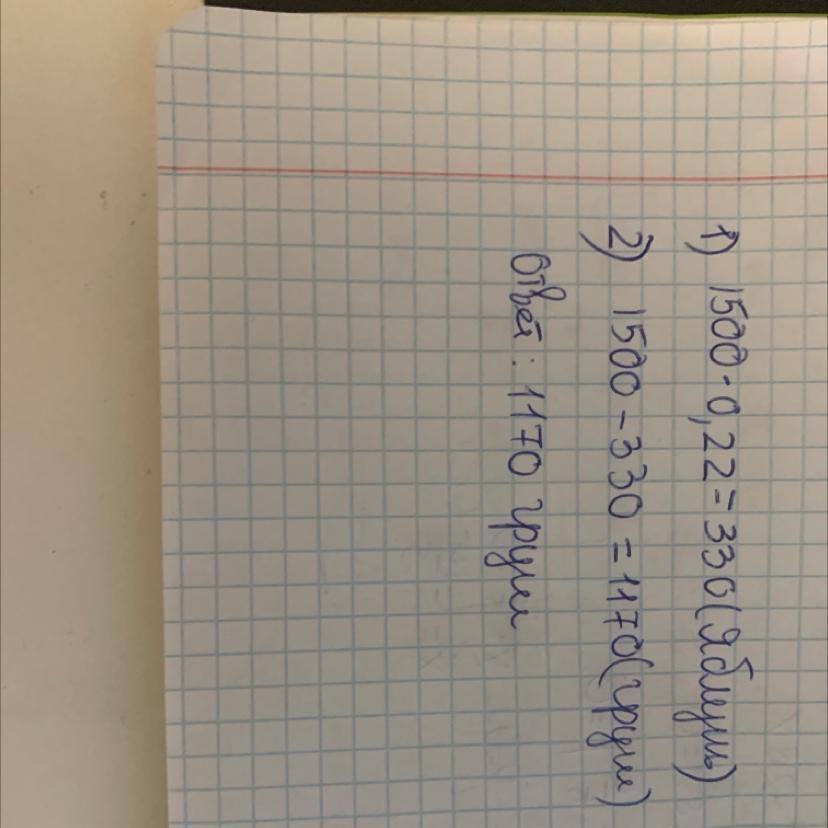 1) 1500 · 0,22 = 330 (Яблунь)
2) 1500 - 330 = 1170 (груш)
Ответ: 1170 груш